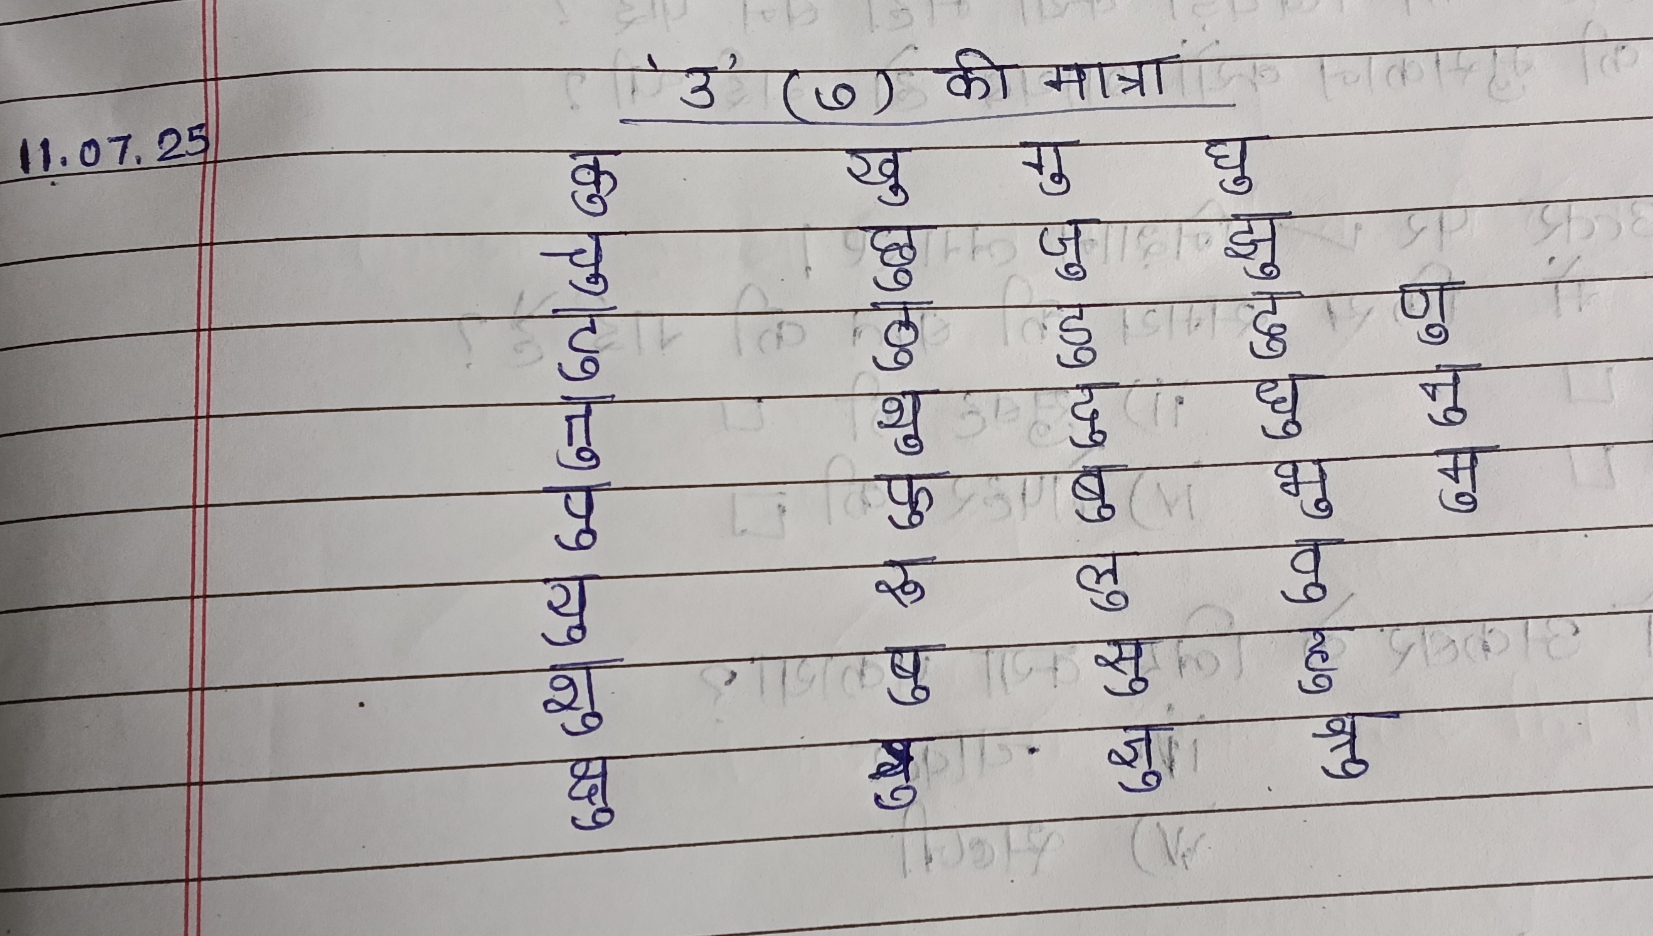 'उ' (ु) की मात्रा
11.07.25
कु खु गु घु
चु छु जु झु
टु ठु डु ढु णु
तु थु दु धु नु
पु फु बु भु मु
यु रु लु वु
शु षु सु हु
क्षु ज्ञु श्रु